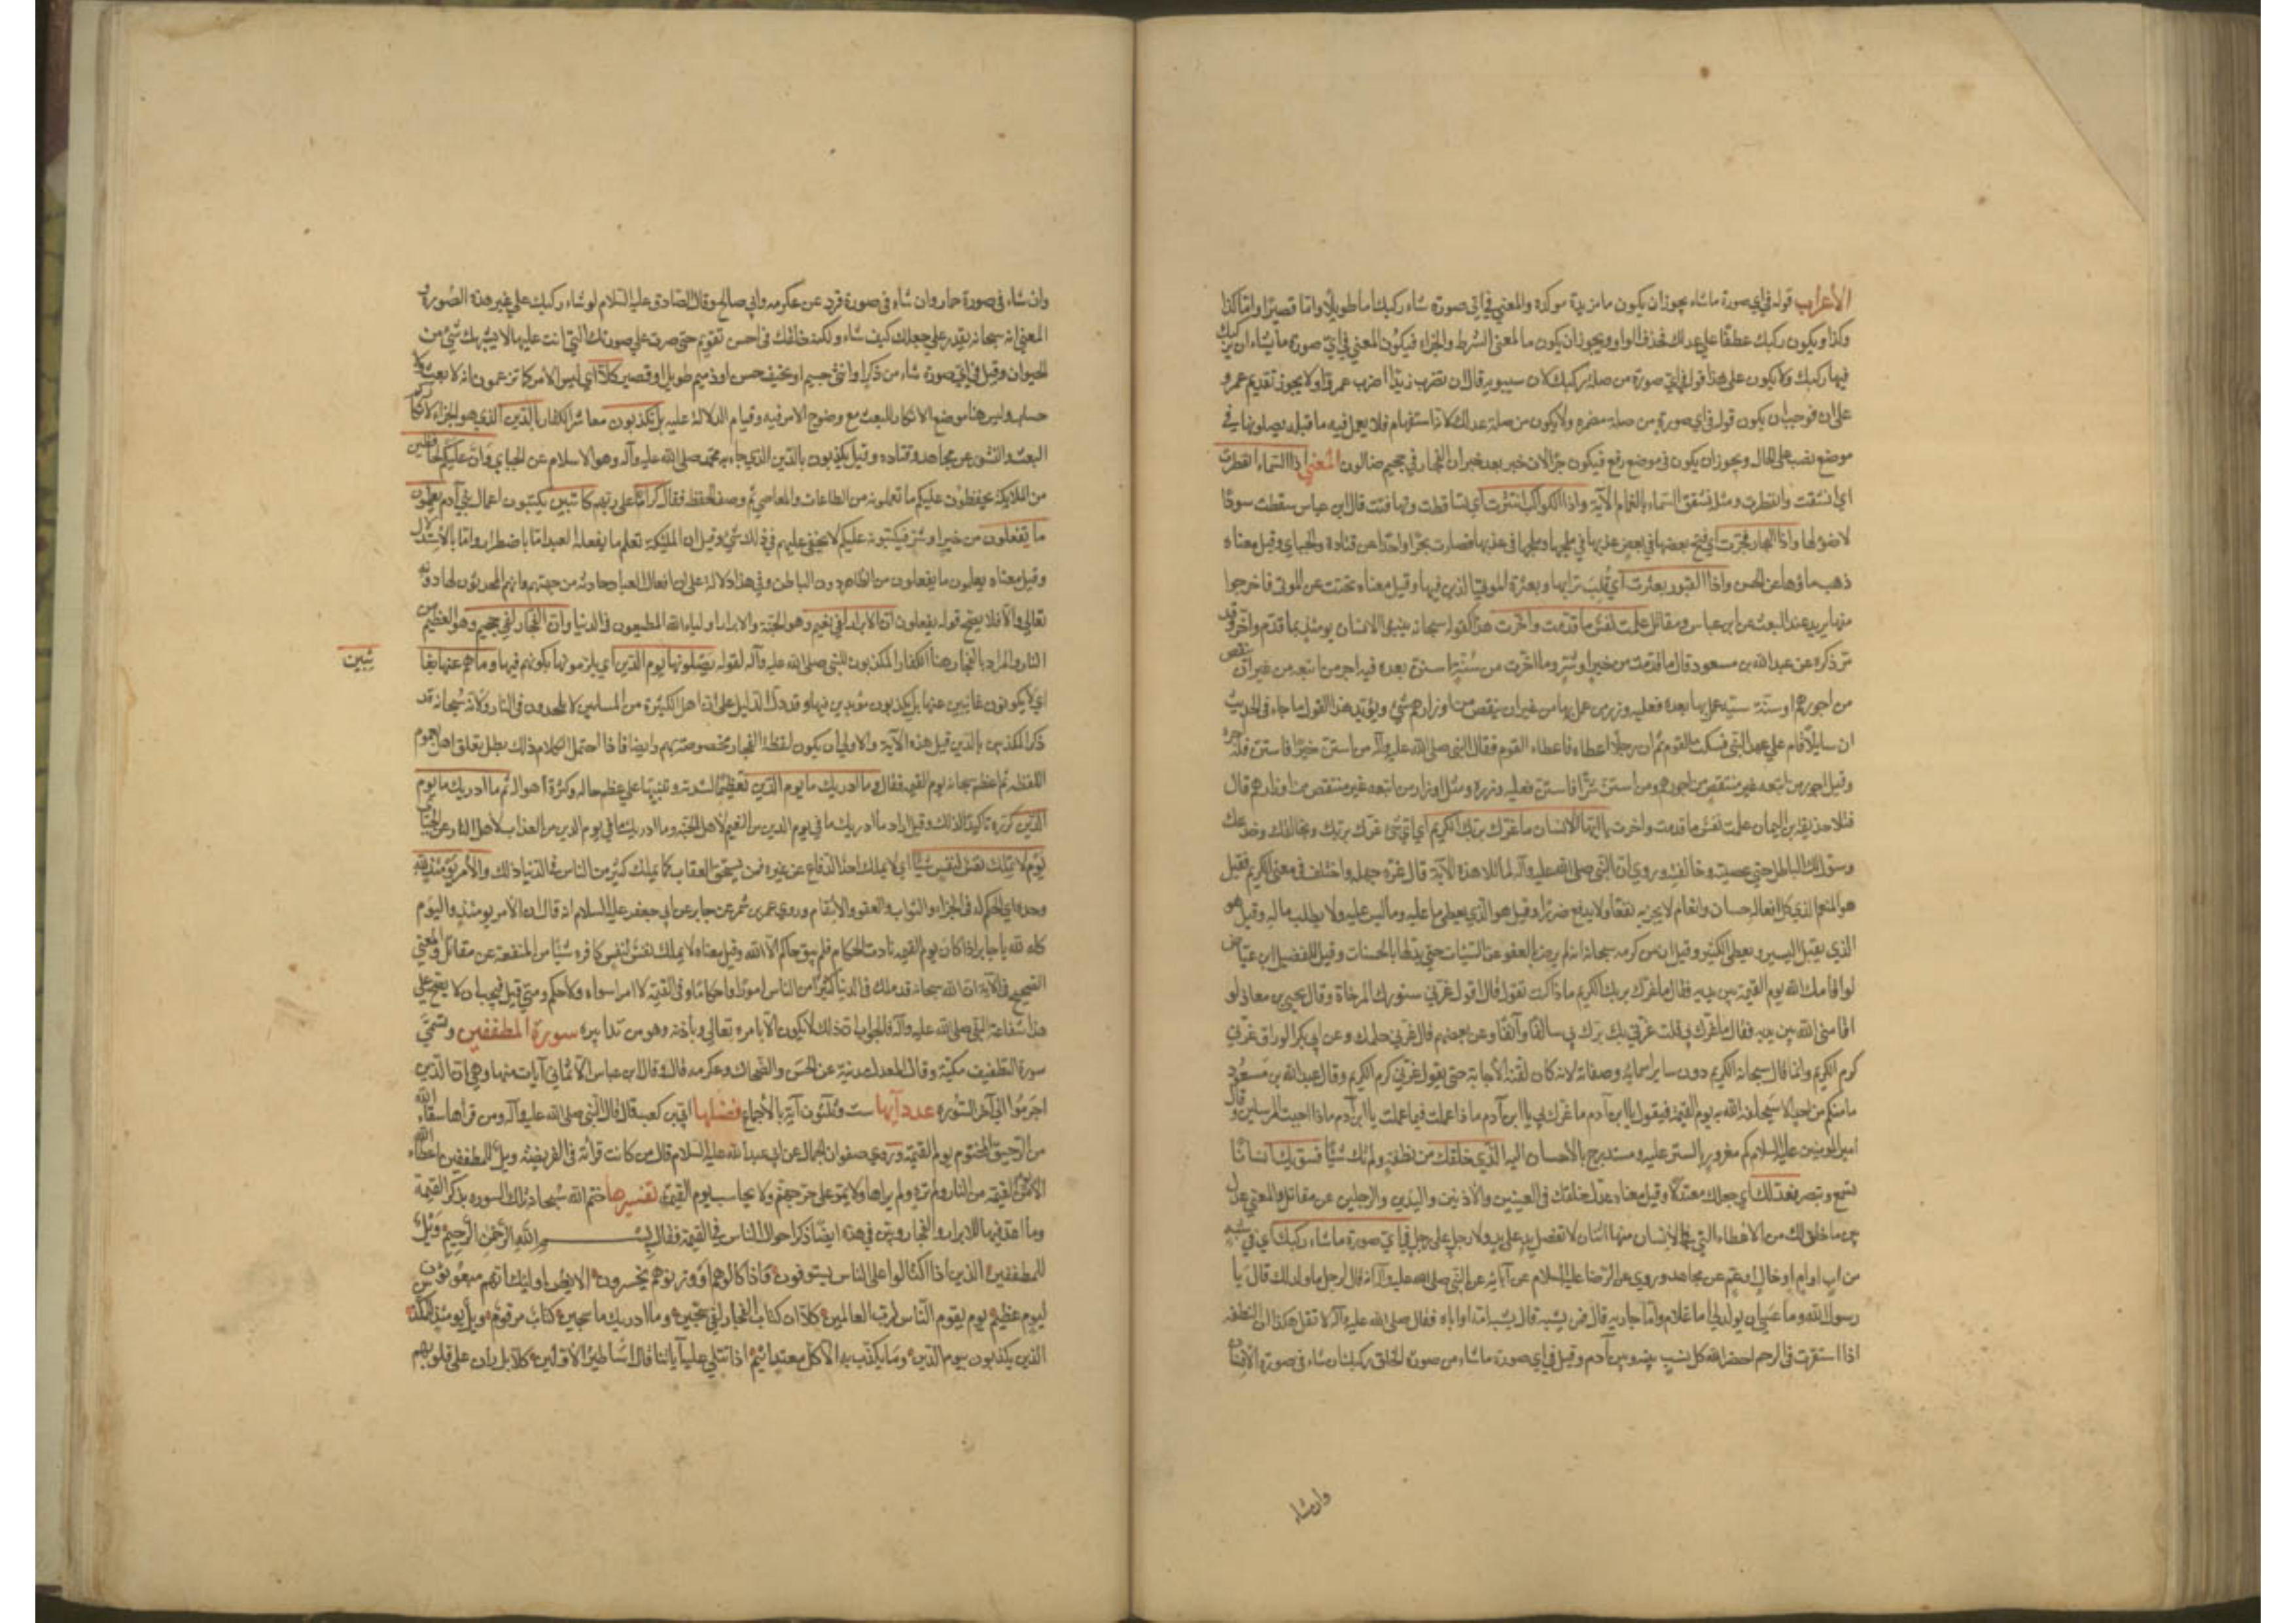 الأعراب قوله في اي صورة ما شاء يجوز ان يكون ما مزيدة موكدة والمعني في اي صورة شاء ركبك اما طويلا واما قصيرا واما كذا
وكذا ويكون ركبك عطفا علي عدلك فحذف الواو ويجوز ان يكون ما لمعني الشرط والجزاء فيكون المعني في اي صورة ما يشاء ان يركبك
فيها ركبك ولا يكون علي هذا قوله في اي صورة من صلة ركبك لان سيبويه قال ان تضرب زيدا اضرب عمرا ولا يجوز تقديم عمرو
علي ان فوجب ان يكون قوله في اي صورة من صلة مضمره ولا يكون من صلة عدلك لانه استفهام فلا يعمل فيه ما قبله يصلونها في
موضع نصب علي الحال ويجوز ان يكون في موضع رفع فيكون خبرا لان خبر بعد خبر ان الفجار لفي جحيم صالون المعني اذا السماء انفطرت
اي انشقت وانفطرت ومثله تشقق السماء بالغمام الآية واذا الكواكب انتثرت اي تساقطت وتهافتت قال ابن عباس سقطت سودا
لا ضوء لها واذا البحار فجرت اي فتح بعضها في بعض عذبها في ملحها وملحها في عذبها فصارت بحرا واحدا عن قتادة والجبائي وقيل معناه
ذهب ماؤها عن الحسن واذا القبور بعثرت اي قلب ترابها وبعثرة الموتي الذين فيها وقيل معناه بحثت عن الموتي فاخرجوا
منها يريد عند البعث عن ابن عباس ومقاتل علمت نفس ما قدمت واخرت هذا كقوله سبحانه ينبؤا الانسان يومئذ بما قدم واخر وقد
مر ذكره عن عبد الله بن مسعود قال ما قدمت من خير او شر وما اخرت من سنة سنة بعده فيه اجر من اتبعه من غير ان ينقص
من اجورهم او سنة سيئة عمل بها بعده فعليه وزر من عمل بها من غير ان ينقص من اوزارهم شئ ويؤيد هذا القول ما جاء في الحديث
ان سايلا قام علي عهد النبي فسكت القوم ثم ان رجلا اعطاه فاعطاه القوم فقال النبي صلي الله عليه وآله من استن خيرا فاستن فله اجره
وقيل اجور من اتبعه غير منتقص من اجورهم ومن استن شرا فاستن فعليه وزره ومثل اوزار من اتبعه غير منتقص من اوزارهم قال
فتلا حذيفة بن اليمان علمت نفس ما قدمت واخرت يا ايها الانسان ما غرك بربك الكريم اي اي شئ غرك بربك وخالفك وخدعك
وسول لك الباطل حتي عصيته وخالفته وروي ان النبي صلي الله عليه وآله لما تلا هذه الآية قال غره جهله واختلف في معني الكريم فقيل
هو المنعم الذي كل افعاله احسان وانعام لا يجر به نفعا ولا يدفع ضررا وقيل هو الذي يعطي ما عليه وما ليس عليه ولا يطلب ما له وقيل هو
الذي يقبل اليسير ويعطي الكثير وقيل ان من كرمه سبحانه انه لم يرض بالعفو عن السيئات حتي بدلها بالحسنات وقيل للفضيل ابن عياض
لو اقامك الله يوم القيمة بين يديه فقال ما غرك بربك الكريم ماذا كنت تقول قال اقول غرني ستورك المرخاة وقال يحيي بن معاذ لو
اقامني الله بين يديه فقال ما غرك بي قلت غرني بك برك بي سالفا وآنفا وعن بعضهم قال غرني حلمك وعن ابي بكر الوراق غرني
كرم الكريم وانما قال سبحانه الكريم دون ساير اسمائه وصفاته لانه كان لقنه الأجابة حتي يقول غرني كرم الكريم وقال عبد الله بن مسعود
ما منكم من احد الا سيخلو الله به يوم القيمة فيقول يا ابن آدم ما غرك بي يا ابن آدم ماذا عملت فيما عملت يا ابن آدم ماذا اجبت المرسلين وقال
امير المومنين عليه السلام كم مغرور بالستر عليه ومستدرج بالأحسان اليه الذي خلقك من نطفة ولم تك شيئا فسويك انسانا
تسمع وتبصر فعدلك اي جعلك معتدلا وقيل معناه عدل خلقك في العينين والاذنين واليدين والرجلين عن مقاتل والمعني عدل
بين ما خلق لك من الاعضاء التي في الإنسان منها اثنان لا تفضل يد علي يد ولا رجل علي رجل في اي صورة ما شاء ركبك اي في شبه
من اب او ام او خال او عم عن مجاهد وروي عن الرضا عليه السلام عن آبائه عن النبي صلي الله عليه وآله انه قال لرجل ما ولد لك قال يا
رسول الله وما عسي ان يولد لي اما غلام واما جارية قال فمن يشبه قال يشبه امه او اباه فقال صلي الله عليه وآله لا تقل هكذا ان النطفه
اذا استقرت في الرحم احضر الله كل نسب بينه وبين آدم وقيل في اي صورة ما شاء من صور الخلق ركبك ان شاء في صورة الأنسان
وان شاء
وان شاء في صورة حمار وان شاء في صورة قرد عن عكرمه وابي صالح وقال الصادق عليه السلام لو شاء ركبك علي غير هذه الصورة و
المعني انه سبحانه يقدر علي جعلك كيف شاء ولكنه خلقك في احسن تقويم حتي صرت علي صورتك التي انت عليها لا يشبهك شئ من
الحيوان وقيل في اي صورة شاء من ذكر او انثي جسيم او نحيف حسن او ذميم طويل او قصير كلا اي ليس الامر كما تزعمون انه لا بعث ولا
حساب وليس هنا موضع الانكار للبعث مع وضوح الامر فيه وقيام الدلالة عليه بل تكذبون معاشر الكفار بالدين الذي هو الجزاء لانكاركم
البعث والنشور عن مجاهد وقتاده وقيل تكذبون بالدين الذي جاء به محمد صلي الله عليه وآله وهو الاسلام عن الجبائي وان عليكم لحافظين
من الملايكة يحفظون عليكم ما تعملونه من الطاعات والمعاصي ثم وصف الحفظة فقال كراما علي ربهم كاتبين يكتبون اعمال بني آدم يعلمون
ما تفعلون من خير او شر فيكتبونه عليكم لا يخفي عليهم في ذلك شئ وقيل ان الملئكة تعلم ما يفعله العبد اما باضطرار واما بالأستدلال
وقيل معناه يعلمون ما يفعلون من الظاهر دون الباطن وفي هذا دلالة علي ان افعال العباد حادثة من جهتهم وانهم المحدثون لها دونه
تعالي والا فلا يصح قوله يفعلون ان الأبرار لفي نعيم وهو الجنة والابرار اولياء الله المطيعون في الدنيا وان الفجار لفي جحيم وهو العظيم من
النار والمراد بالفجار هنا الكفار المكذبون للنبي صلي الله عليه وآله لقوله يصلونها يوم الدين اي يلزمونها بكونهم فيها وما هم عنها بغا
ئبين
اي لا يكونون غايبين عنها بل يكونون مؤبدين فيها وقد دل الدليل علي ان اهل الكبيرة من المسلمين لا يخلدون في النار ولانه سبحانه قد
ذكر المكذبين بالدين قبل هذه الآية والاولي ان يكون لفظة الفجار مخصوصة بهم وايضا فاذا احتمل الكلام ذلك بطل تعلق اهل العموم
اللفظ ثم عظم سبحانه يوم القيمة فقال وما ادريك ما يوم الدين تعظيما لشدته وتنبيها علي عظم حاله وكثرة اهواله ثم ما ادريك ما يوم
الدين كرره تاكيدا لذلك وقيل اراد ما ادريك ما في يوم الدين من النعيم لأهل الجنة وما ادريك ما في يوم الدين من العذاب لأهل النار عن الجبائي
يوم لا تملك نفس لنفس شيئا اي لا يملك احد الدفاع عن غيره ممن يستحق العقاب كما يملك كثير من الناس في الدنيا ذلك والأمر يومئذ لله
وحده اي الحكم له في الجزاء والثواب والعفو والأنتقام وروي عمرو بن شمر عن جابر عن ابي جعفر عليه السلام انه قال ان الأمر يومئذ واليوم
كله لله يا جابر اذا كان يوم القيمة بادت الحكام فلم يبق حاكم الا الله وقيل معناه لا يملك نفس لنفس كافرة شيئا من المنفعة عن مقاتل والمعني
الصحيح في الآية ان الله سبحانه قد ملك في الدنيا كثيرا من الناس امورا واحكاما وفي القيمة لا امر سواه ولا حكم ومتي قيل فيجب ان لا يصح علي
هذا شفاعة النبي صلي الله عليه وآله فالجواب ان ذلك لا يكون الا بأمره تعالي وبأذنه وهو من تدابيره سورة المطففين وتسمي
سورة التطفيف مكية وقال المعدل مدنية عن الحسن والضحاك وعكرمه قال وقال ابن عباس الا ثماني آيات منها وهي ان الذين
اجرموا الي آخر السورة عدد آيها ست وثلثون آية بالأجماع فضلها ابي بن كعب قال قال النبي صلي الله عليه وآله ومن قرأها سقاه الله
من الرحيق المختوم يوم القيمة وروي صفوان الجمال عن ابي عبد الله عليه السلام قال من كانت قرأته في الفريضة ويل للمطففين اعطاه الله
الأمن القيمة من النار ولم تره ولم يراها ولا يمر علي جسر جهنم ولا يحاسب يوم القيمة تفسيرها ختم الله سبحانه تلك السوره بذكر القيمة
وما اعد فيها للابرار والفجار وبين في هذه ايضا ذكر احوال الناس في القيمة فقال بسم الله الرحمن الرحيم ويل
للمطففين الذين اذا اكتالوا علي الناس يستوفون فاذا كالوهم او وزنوهم يخسرون الا يظن اولئك انهم مبعوثون
ليوم عظيم يوم يقوم الناس لرب العالمين كلا ان كتاب الفجار لفي سجين وما ادريك ما سجين كتاب مرقوم ويل يومئذ للمكذبين
الذين يكذبون بيوم الدين وما يكذب به الا كل معتد اثيم اذا تتلي عليه آياتنا قال اساطير الأولين كلا بل ران علي قلوبهم